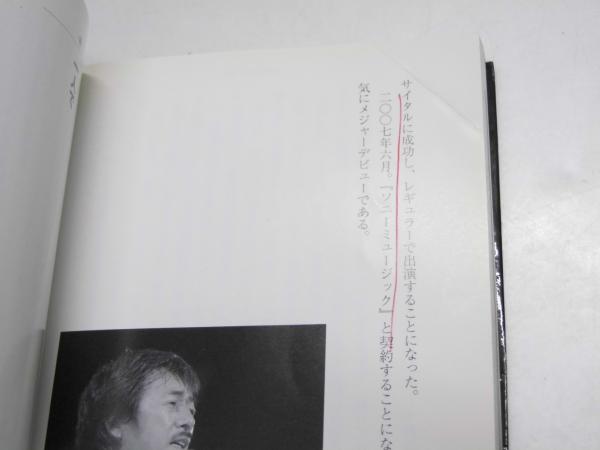 サイタルに成功し、レギュラーで出演することになった。
二〇〇七年六月。『ソニーミュージック』と契約することにな
気にメジャーデビューである。